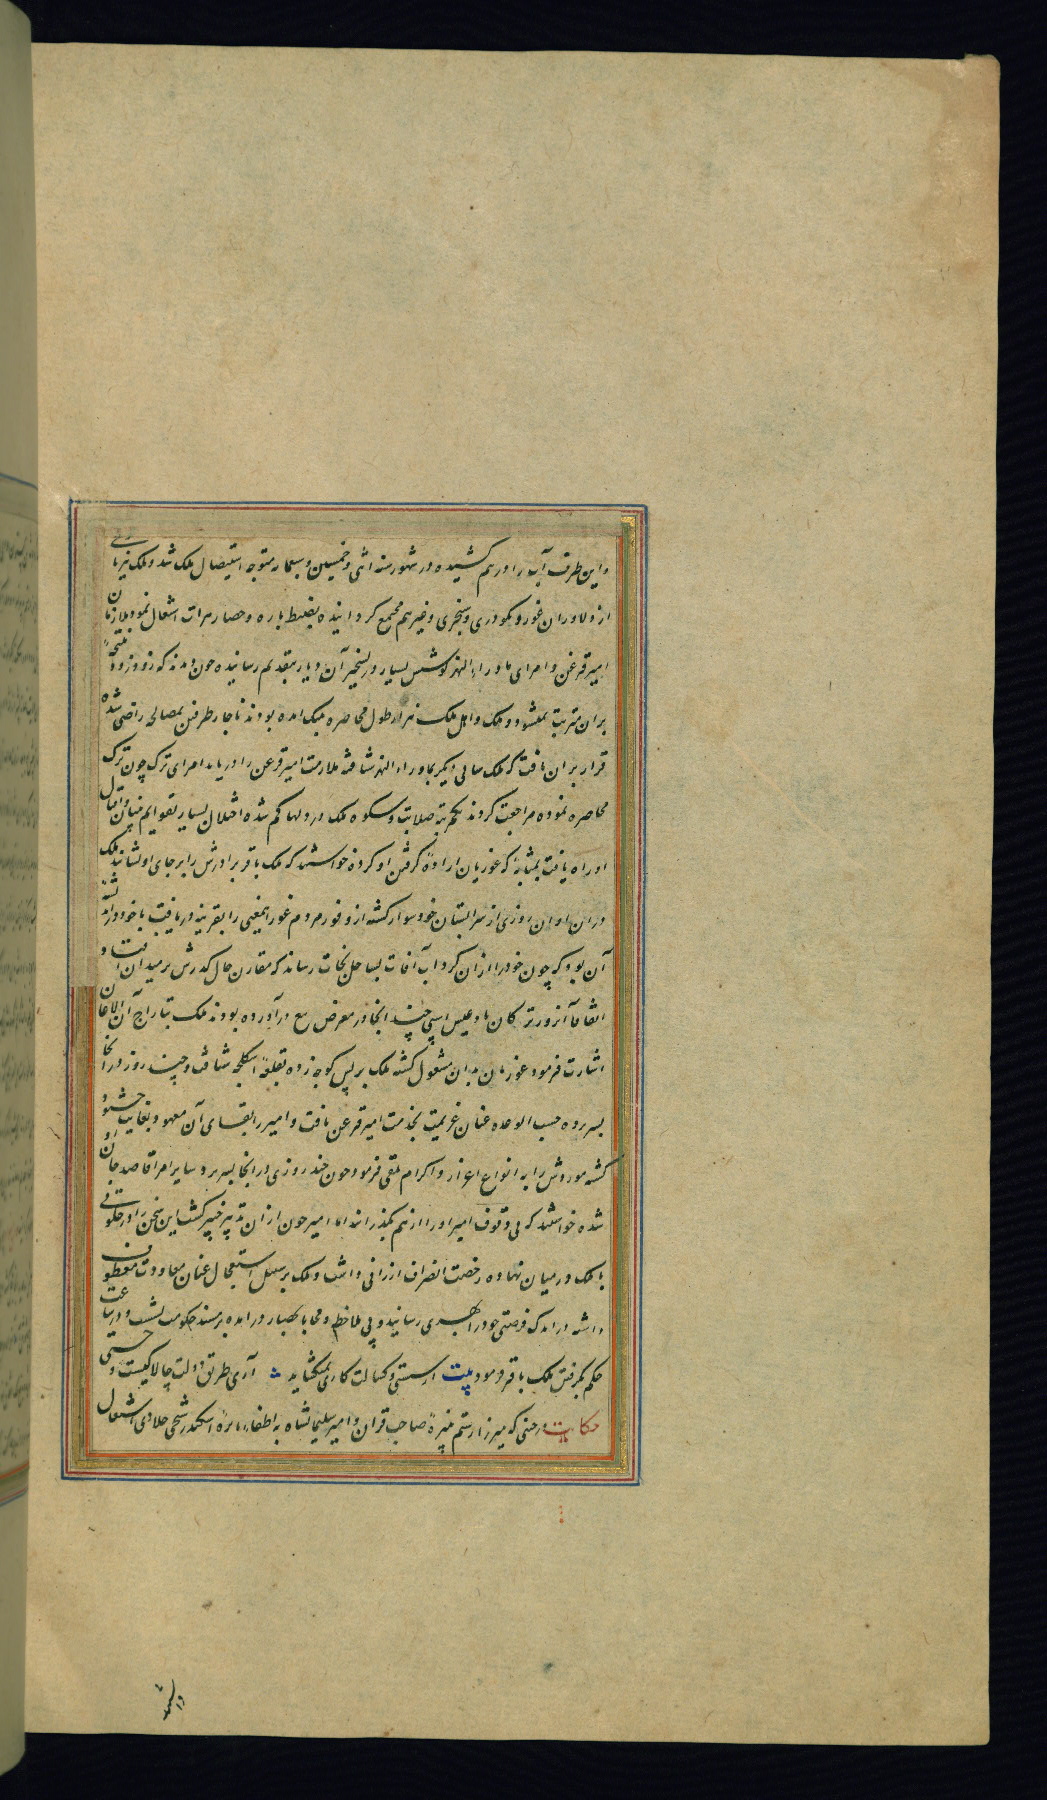 و این طرف آب را در هم کشیده در شهور سنه اثنی و خمسین و سبعمائه متوجه استیصال ملک شد و ملک نیز
از دلاوران غور و نکودری و سنجری و غیرهم مجتمع گردانیده بضبط باره و حصار هرات اشتغال نمود ملازمان
امیر قزغن و امرای ماوراء النهر کوشش بسیار در تسخیر آن دیار بتقدیم رسانیده چون دیدند که زود زود
بران مترتب نمیشود و ملک و اهل ملک نیز از طول محاصره بتنک آمده بودند ناچار طرفین بمصالحه راضی شده
قرار بران یافت که ملک سالی دیگر بماوراء النهر شتافته ملازمت امیر قزغن را دریابد امرای ترک چون ترک
محاصره نموده مراجعت کردند صلابت و شکوه ملک در دلها کم شده اختلال بسیار بقوایم
او راه یافت بمثابه که غوریان اراده گرفتن او کرده خواستند که ملک باقر برادرش را بر جای او نشانند ملک
در آن اوان روزی از سرابستان خود سوار گشته از وفور مردم غور اینمعنی را بقرینه دریافت با خود
آن بود که چون خود را ازان گرداب آفات بساحل نجات رساند که مقارن حال گذرش بر میدان
اتفاقا آنروز ترکان بادغیس اسپی چند آنجا در معرض بیع درآورده بودند ملک بتاراج آن
اشارت فرمود غوریان بدان مشغول گشته ملک بر پس کوچه زده بقلعه اسکلجه شتافت و چند روز در آنجا
بسر برده حسب الوعده عنان عزیمت بخدمت امیر قزغن تافت و امیر را بقاسای آن معهود بغایت
گشته موردش را به انواع اعزاز و اکرام تلقی فرمود چون چند روزی در آنجا بسر برد سایر امرا قاصد جان او
شده خواستند که بی وقوف امیر او را از هم بگذرانند اما امیر چون ازان تدبیر خبیر گشت این سخن را در خلوتی
با ملک در میان نهاده رخصت انصراف ارزانی داشت و ملک بر سبیل استعجال عنان معاودت معطوف
داشته در اندک فرصتی خود را بهری رسانید و بی ملاحظه و محابا بحصار درآمده بر مسند حکومت نشست و در ساعت
حکم بگرفتن ملک باقر فرمود بیت از سستی و کسالت کاری نمیگشاید آری طریق دولت چالاکیست و چستی
حکایت در حینی که میرزا رستم نبیره صاحب قران و امیر سلیمانشاه به اطفاء نایره اسکندر شیخی جلاوی اشتغال